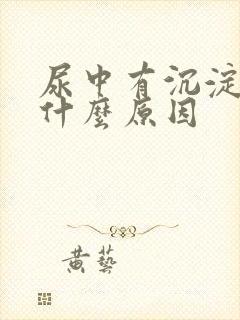 尿中有沉淀
什麼原因
黄藝